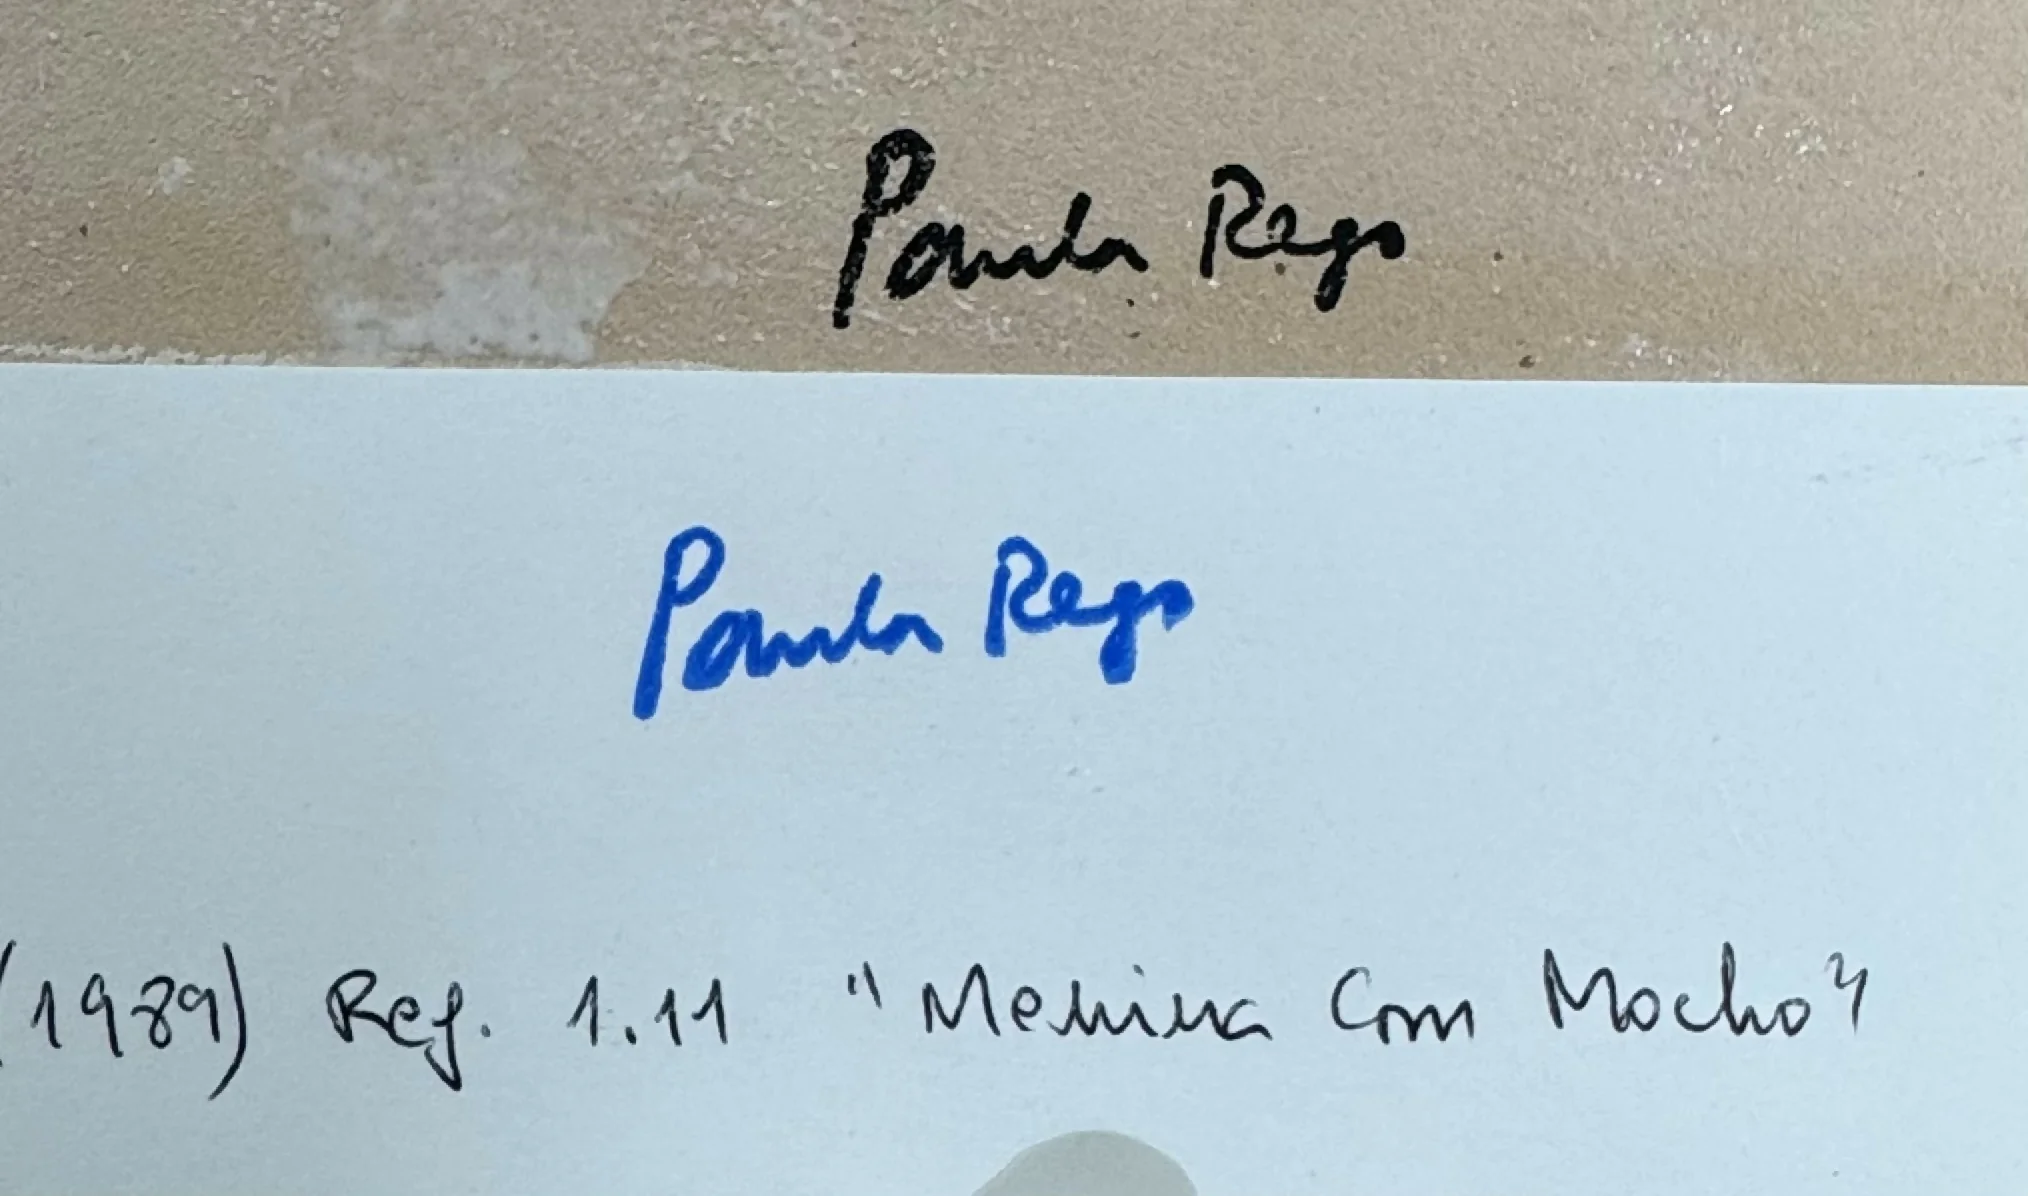 Paula Rego
Paula Rego
(1989) Ref. 1.11 "Menina Com Mocho"